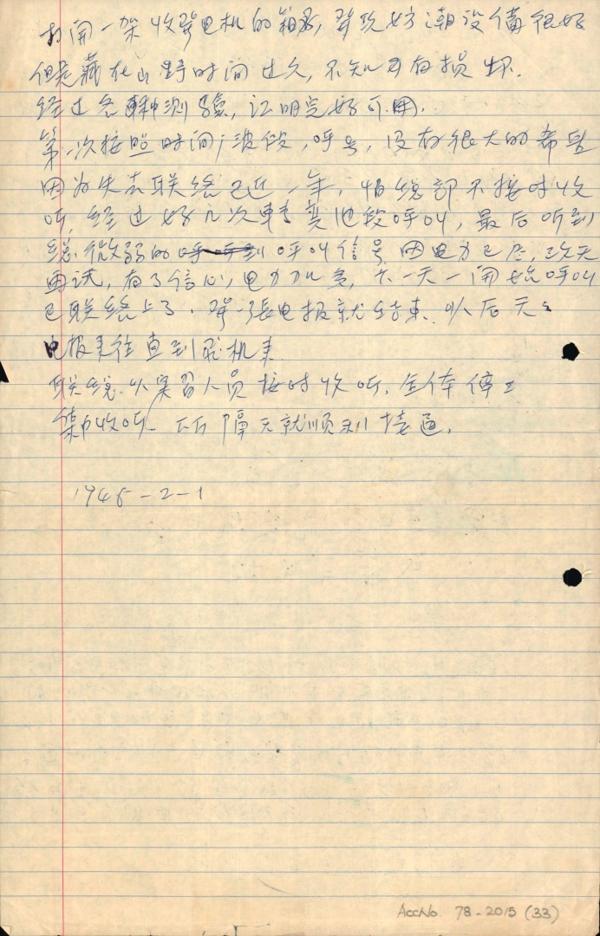 打開一架收發电机的箱子，發现防潮设備很好
但是藏在山野时间过久，不知可有损坏.
经过各种测驗，证明完好可用.
第一次按照时间，波段，呼号，没有很大的希望
因为失去联络已近一年，怕总部不按时收
听，经过好几次转变地段呼叫，最后听到
微弱的呼叫信号，因电力已尽，改天
再试，有了信心，电力加足，不一天一開始呼叫
已联络上了，發一張电报就结束，以后天天
电报来往直到飛机来
联络以实習人员按时收听，全体停工
集中收听，隔天就顺利接通.
1945-2-1
AccNo 78-2015 (33)